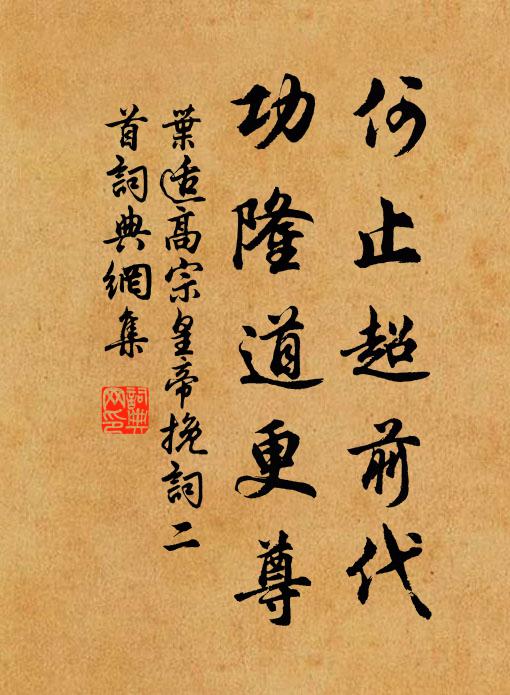 何止超前代
功隆道更尊
葉適高宗皇帝挽詞二
首詞典網集
詞典
网印